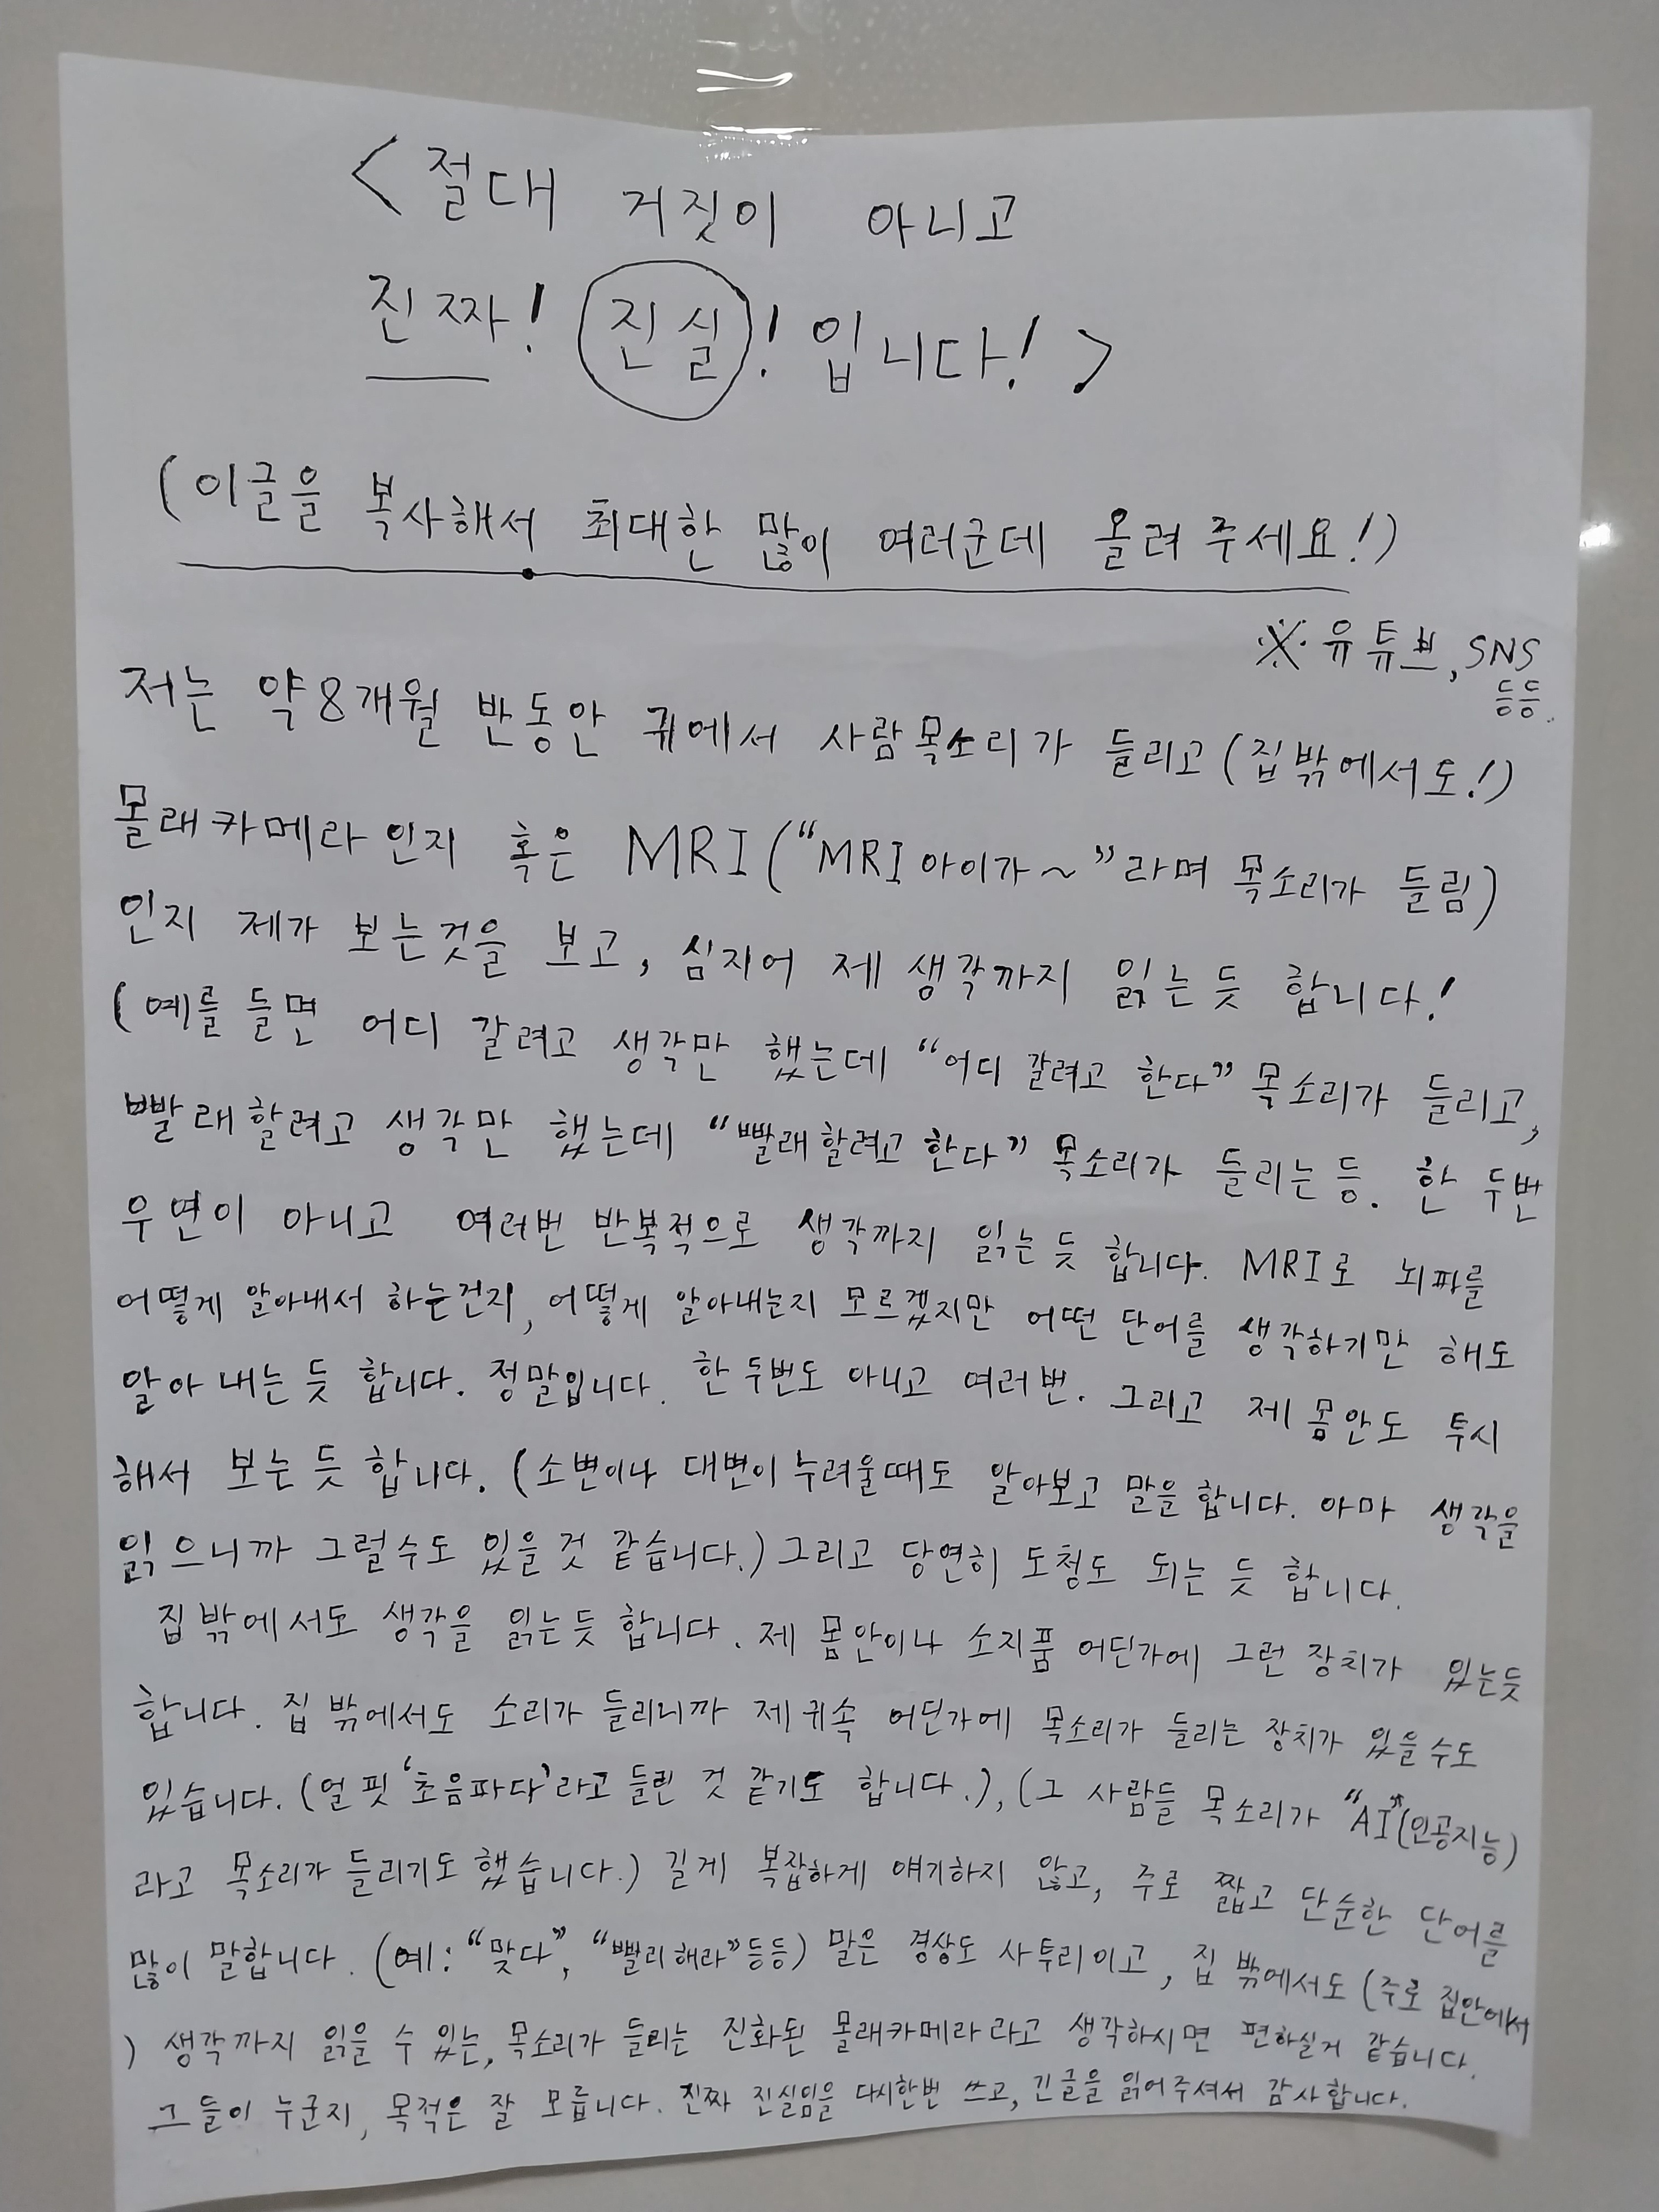 <절대 거짓이 아니고
진짜! 진실! 입니다!>
(이글을 복사해서 최대한 많이 여러군데 올려 주세요!)
※ 유튜브, SNS
등등.
저는 약8개월 반동안 귀에서 사람목소리가 들리고(집밖에서도!)
몰래카메라인지 혹은 MRI("MRI 아이가~"라며 목소리가 들림)
인지 제가 보는것을 보고, 심지어 제 생각까지 읽는듯 합니다!
(예를들면 어디 갈려고 생각만 했는데 "어디 갈려고 한다" 목소리가 들리고,
빨래할려고 생각만 했는데 "빨래할려고 한다" 목소리가 들리는등. 한 두번
우연이 아니고 여러번 반복적으로 생각까지 읽는듯 합니다. MRI로 뇌파를
어떻게 알아내서 하는건지, 어떻게 알아내는지 모르겠지만 어떤 단어를 생각하기만 해도
알아 내는듯 합니다. 정말입니다. 한 두번도 아니고 여러번. 그리고 제 몸안도 투시
해서 보는듯 합니다. (소변이나 대변이 누려울때도 알아보고 말을 합니다. 아마 생각을
읽으니까 그럴수도 있을 것 같습니다.) 그리고 당연히 도청도 되는 듯 합니다.
집밖에서도 생각을 읽는듯 합니다. 제 몸안이나 소지품 어딘가에 그런 장치가 있는듯
합니다. 집 밖에서도 소리가 들리니까 제귀속 어딘가에 목소리가 들리는 장치가 있을수도
있습니다. (얼핏 '초음파다'라고 들린 것 같기도 합니다.), (그 사람들 목소리가 "AI"(인공지능)
라고 목소리가 들리기도 했습니다.) 길게 복잡하게 얘기하지 않고, 주로 짧고 단순한 단어를
많이 말합니다. (예: "맞다", "빨리해라"등등) 말은 경상도 사투리이고, 집 밖에서도 (주로 집안에서
) 생각까지 읽을 수 있는, 목소리가 들리는 진화된 몰래카메라라고 생각하시면 편하실거 같습니다.
그들이 누군지, 목적은 잘 모릅니다. 진짜 진실임을 다시한번 쓰고, 긴글을 읽어주셔서 감사합니다.